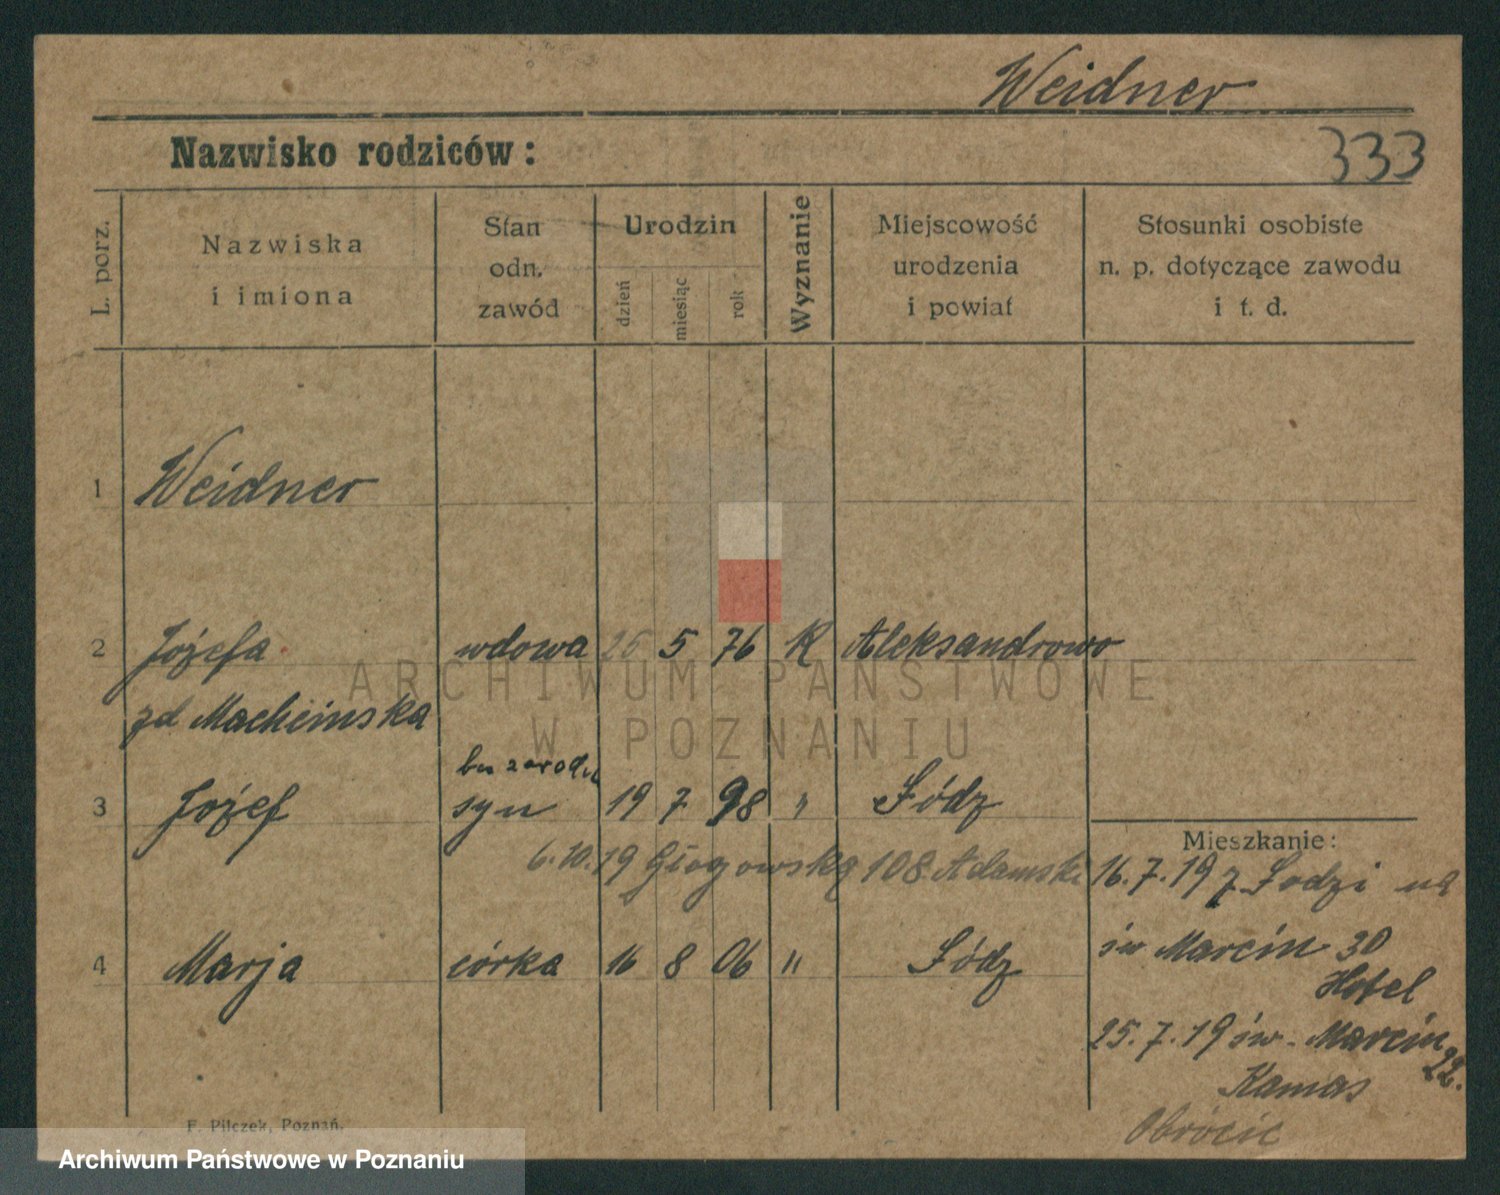 Weidner
Nazwisko rodziców:
333
L. porz.
Nazwiska
i imiona
Stan
odn.
zawód
Urodzin
dzień
miesiąc
rok
Wyznanie
Miejscowość
urodzenia
i powiat
Stosunki osobiste
n. p. dotyczące zawodu
i t. d.
1 Weidner
2 Józefa wdowa 26 5 76 K Aleksandrowo
zd Macheinska
bez zawodu
3 Józef syn 19 7 98 " Łódz
Mieszkanie:
6.10.19 Głogowska 108 Adamski
16.7.19 z Łodzi na
św Marcin 30
Hotel
4 Marja córka 16 8 06 " Łódz
25.7.19 św. Marcin 22.
Kamas
Obrócic
F. Pilczek, Poznań.
ARCHIWUM PAŃSTWOWE
W POZNANIU
Archiwum Państwowe w Poznaniu